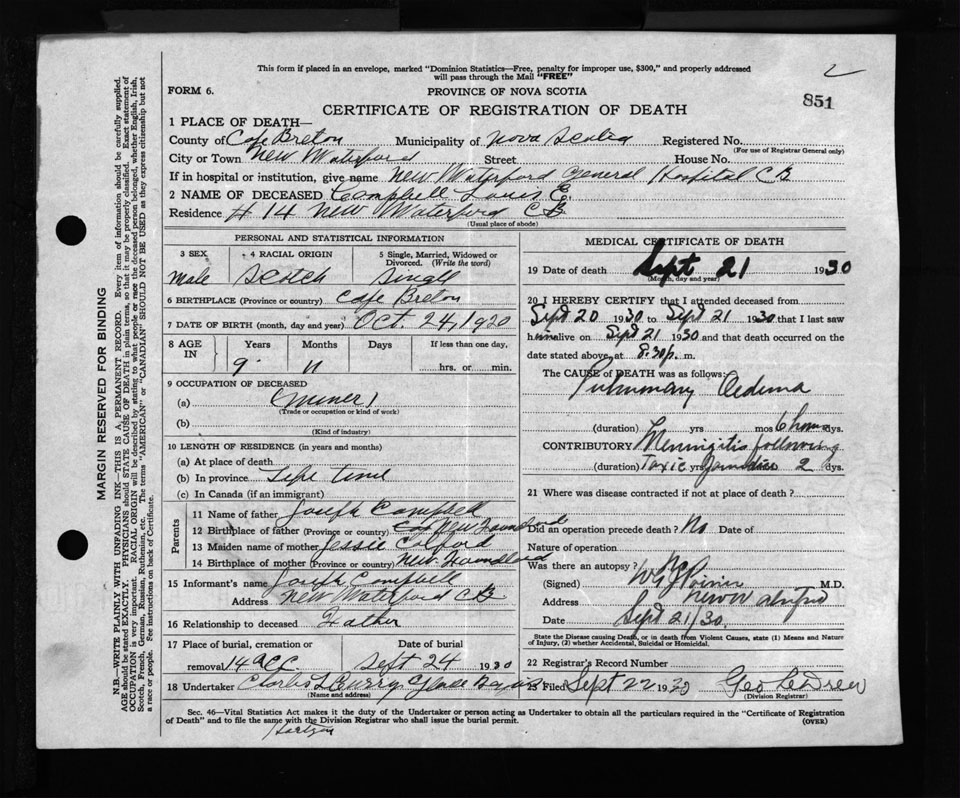 This form if placed in an envelope, marked "Dominion Statistics—Free, penalty for improper use, $300," and properly addressed
will pass through the Mail "FREE"
2
FORM 6.
PROVINCE OF NOVA SCOTIA
851
CERTIFICATE OF REGISTRATION OF DEATH
1 PLACE OF DEATH—
County of Cape Breton Municipality of Nova Scotia Registered No.
(For use of Registrar General only)
City or Town New Waterford Street House No.
If in hospital or institution, give name New Waterford General Hospital CB
2 NAME OF DECEASED Campbell Louis E.
Residence #14 New Waterford CB
(Usual place of abode)
PERSONAL AND STATISTICAL INFORMATION
3 SEX 4 RACIAL ORIGIN 5 Single, Married, Widowed or
Divorced. (Write the word)
Male Scotch Singll
6 BIRTHPLACE (Province or country) Cape Breton
7 DATE OF BIRTH (month, day and year) Oct. 24, 1920
8 AGE IN Years Months Days If less than one day,
9 11 hrs. or min.
9 OCCUPATION OF DECEASED
(a) (Miner)
(Trade or occupation or kind of work)
(b)
(Kind of industry)
10 LENGTH OF RESIDENCE (in years and months)
(a) At place of death
(b) In province Life time
(c) In Canada (if an immigrant)
Parents
11 Name of father Joseph Campbell
12 Birthplace of father (Province or country) New Foundland
13 Maiden name of mother Jessie
14 Birthplace of mother (Province or country) New. Foundland
15 Informant's name Joseph Campbell
Address New Waterford CB
16 Relationship to deceased Father
17 Place of burial, cremation or Date of burial
removal 14 Sept 24 1930
18 Undertaker Charles L Curry Glace Bay
(Name and address)
MEDICAL CERTIFICATE OF DEATH
19 Date of death Sept 21 1930
(Month, day and year)
20 I HEREBY CERTIFY that I attended deceased from
Sept 20 1930 to Sept 21 1930 that I last saw
him alive on Sept 21 1930 and that death occurred on the
date stated above, at 8.30 p. m.
The CAUSE of DEATH was as follows:
Pulmonary Oedema
(duration) yrs mos 6 hours dys.
CONTRIBUTORY Meningitis following
(duration) Toxic yrs Jaundice 2 dys.
21 Where was disease contracted if not at place of death?
Did an operation precede death? No Date of
Nature of operation
Was there an autopsy? No
(Signed) M.D.
Address New Waterford
Date Sept 21/30.
State the Disease causing Death, or in death from Violent Causes, state (1) Means and Nature
of Injury, (2) whether Accidental, Suicidal or Homicidal.
22 Registrar's Record Number
23 Filed Sept 22 1930 Geo
(Division Registrar)
Sec. 46—Vital Statistics Act makes it the duty of the Undertaker or person acting as Undertaker to obtain all the particulars required in the "Certificate of Registration
of Death" and to file the same with the Division Registrar who shall issue the burial permit.
(OVER)
MARGIN RESERVED FOR BINDING
N.B.—WRITE PLAINLY WITH UNFADING INK—THIS IS A PERMANENT RECORD. Every item of information should be carefully supplied.
AGE should be stated EXACTLY. PHYSICIANS should STATE CAUSE OF DEATH in plain terms, so that it may be properly classified. Exact statement of
OCCUPATION is very important. RACIAL ORIGIN will be described by stating to what people or race the deceased person belonged, whether English, Irish,
Scotch, French, German, Russian, Ruthenian, etc. The terms "AMERICAN" or "CANADIAN" SHOULD NOT BE USED as they express citizenship but not
a race or people. See instructions on back of Certificate.